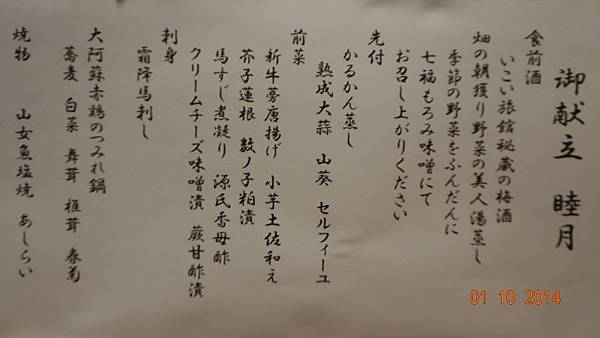 御献立　睦月
食前酒
いこい旅館秘蔵の梅酒
畑の朝獲り野菜の美人湯蒸し
季節の野菜をふんだんに
七福もろみ味噌にて
お召し上がりください
先付
かるかん蒸し
熟成大蒜　山葵　セルフィーユ
前菜
新牛蒡唐揚げ　小芋土佐和え
芥子蓮根　数ノ子粕漬
馬すじ煮凝り　源氏香母酢
クリームチーズ味噌漬　蕨甘酢漬
刺身
霜降馬刺し
大阿蘇赤鶏のつみれ鍋
蕎麦　白菜　舞茸　椎茸　春菊
焼物　山女魚塩焼　あしらい
01 10 2014